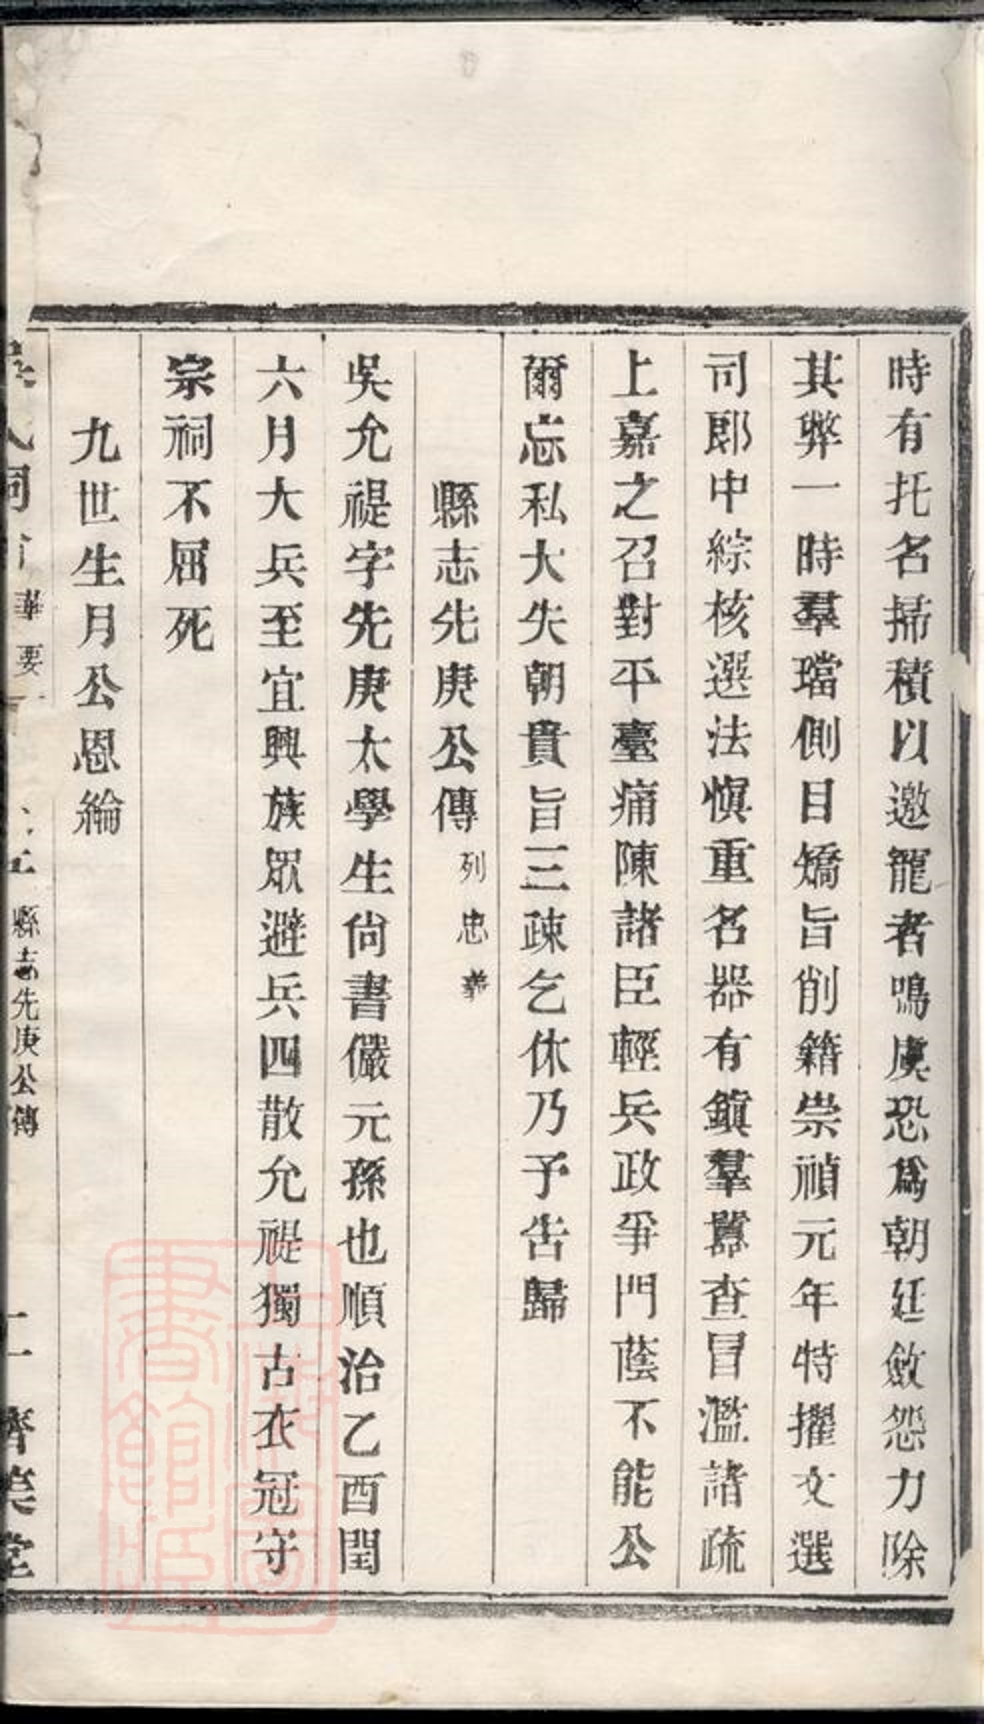 時有托名掃積以邀寵者鳴虞恐為朝廷斂怨力除
其弊一時羣璫側目矯旨削籍崇禎元年特擢文選
司郎中綜核選法慎重名器有鎮羣囂查冒濫諸疏
上嘉之召對平臺痛陳諸臣輕兵政爭門蔭不能公
爾忘私大失朝貴旨三疎乞休乃予告歸
縣志先庚公傳 列忠義
吳允禔字先庚太學生尙書儼元孫也順治乙酉閏
六月大兵至宜興族眾避兵四散允禔獨古衣冠守
宗祠不屈死
九世生月公恩綸
氏祠 華要 縣志先庚公傳 濟美堂